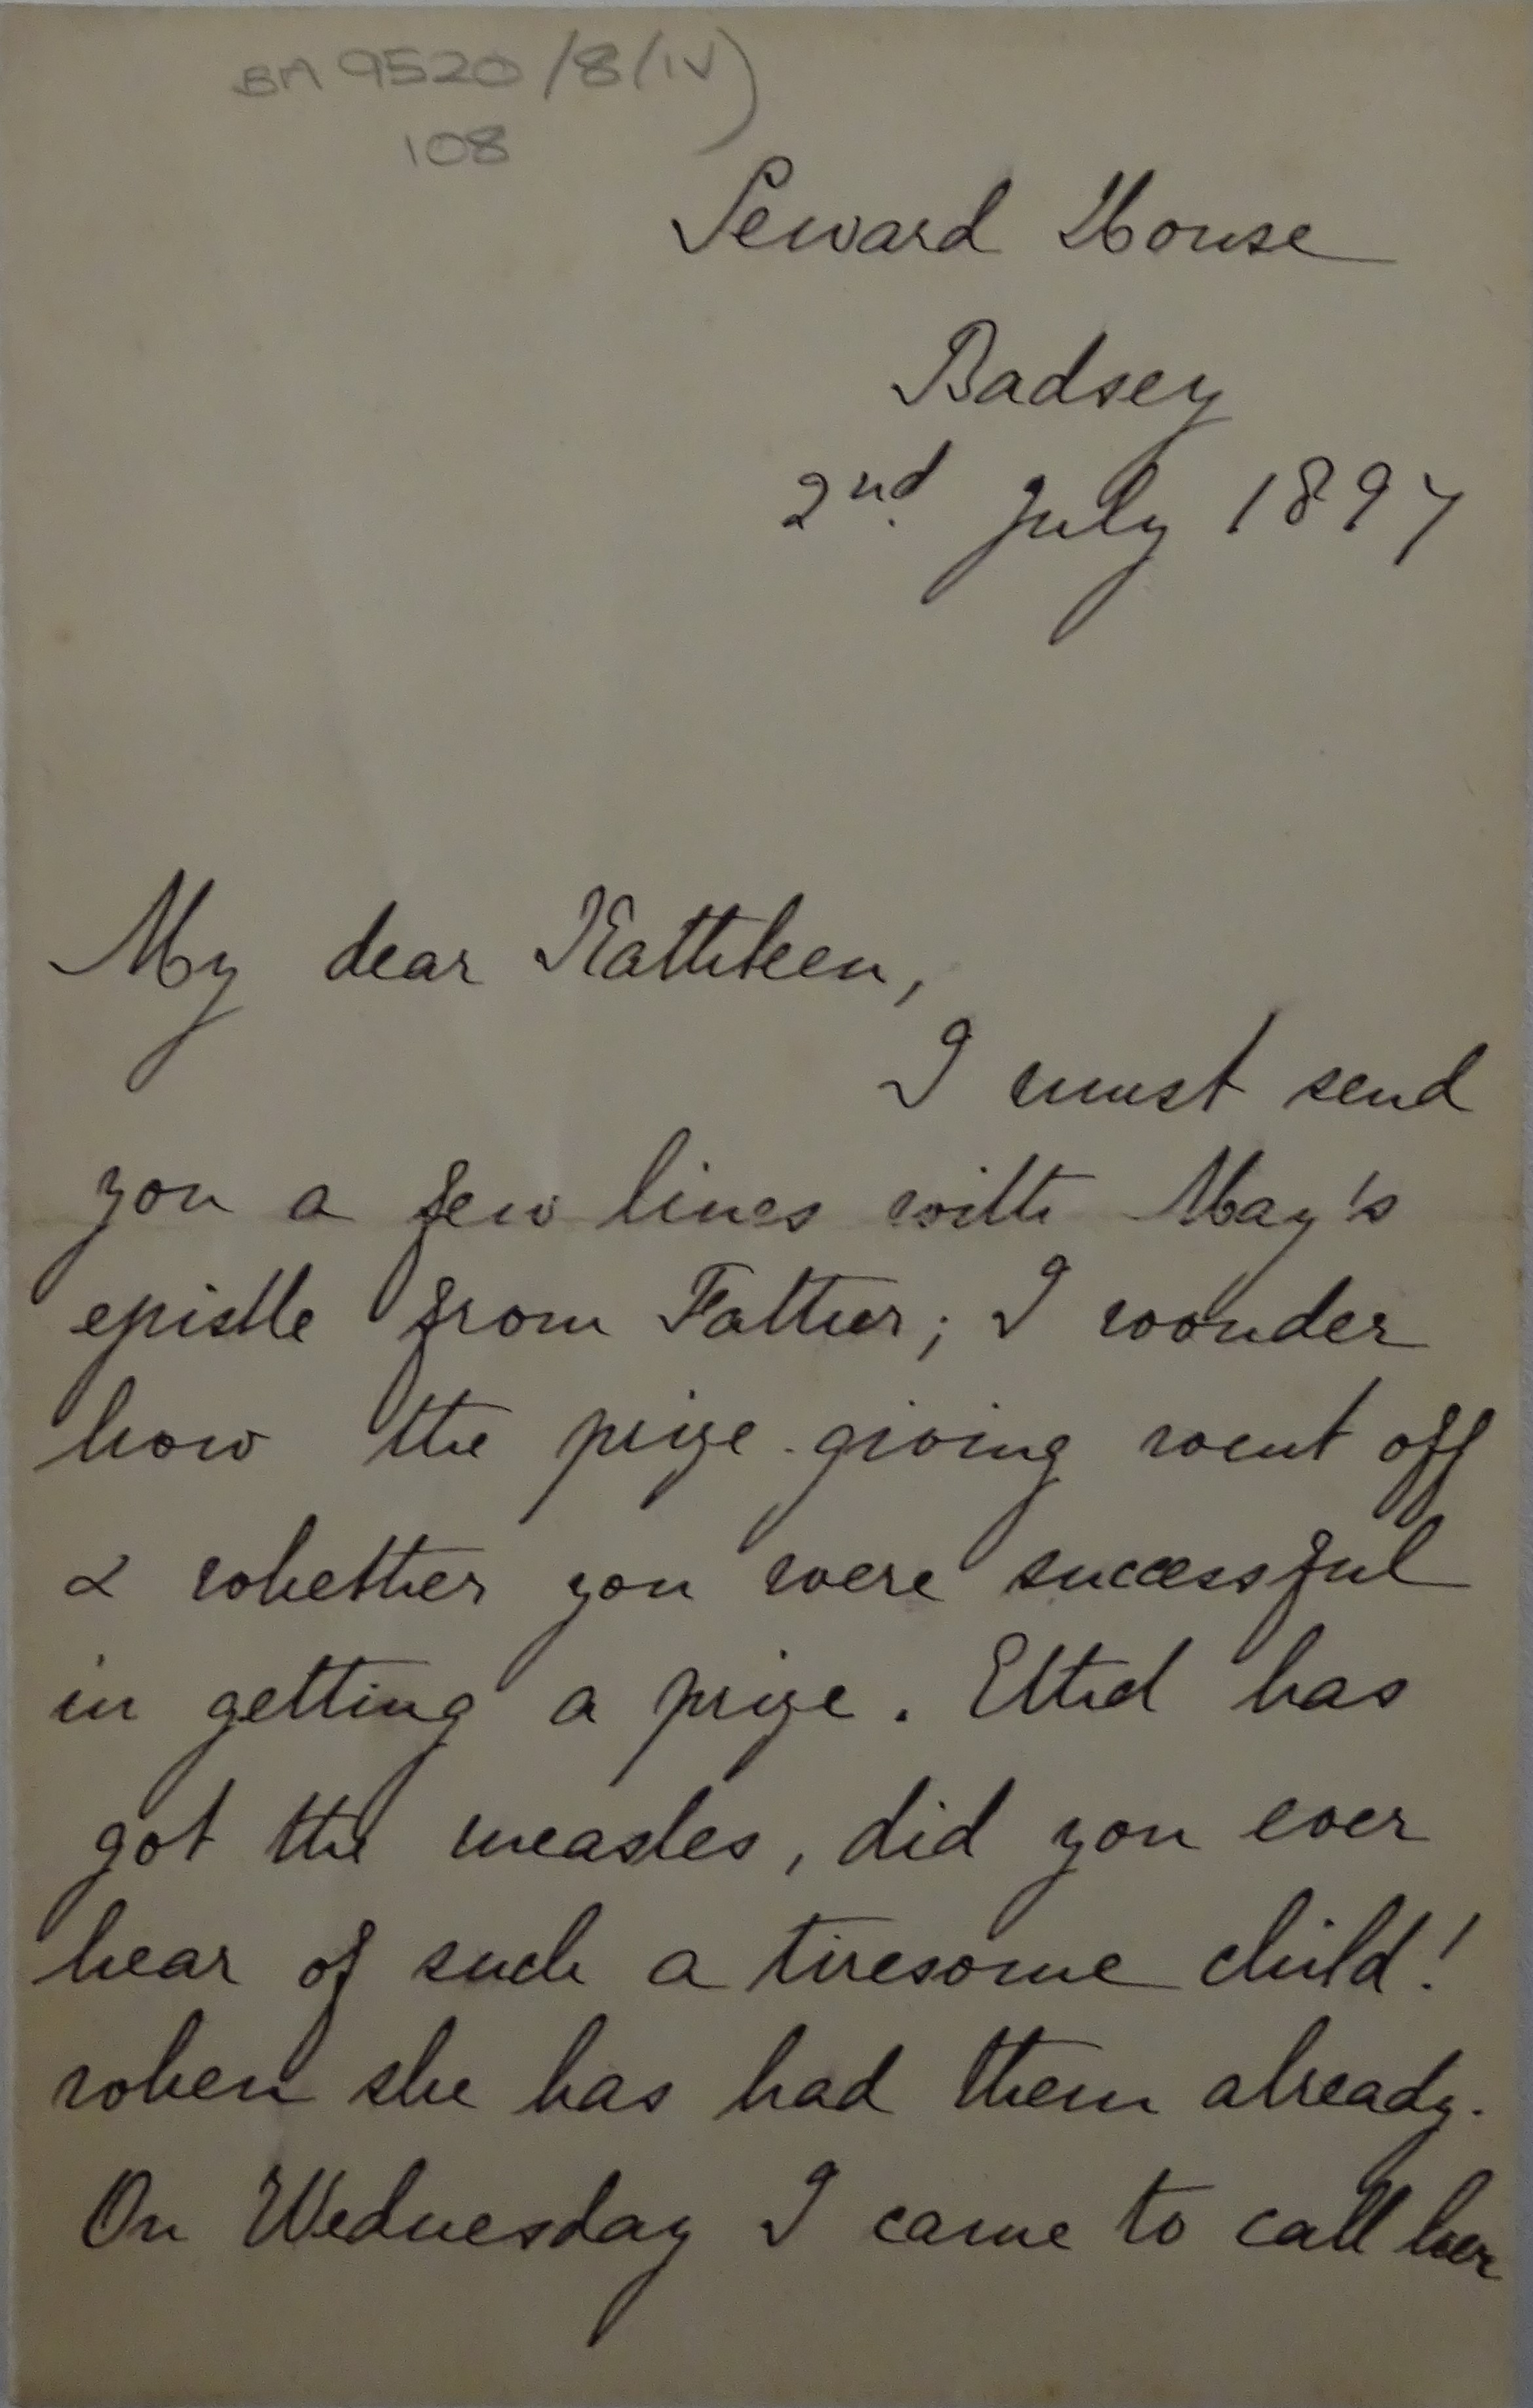 BA 9520/8(IV)
108
Seward House
Badsey
2nd. July 1897
My dear Kathleen,
I must send
you a few lines with May's
epistle from Father; I wonder
how the prize-giving went off
& whether you were successful
in getting a prize. Ethel has
got the measles, did you ever
hear of such a tiresome child!
when she has had them already.
On Wednesday I came to call her